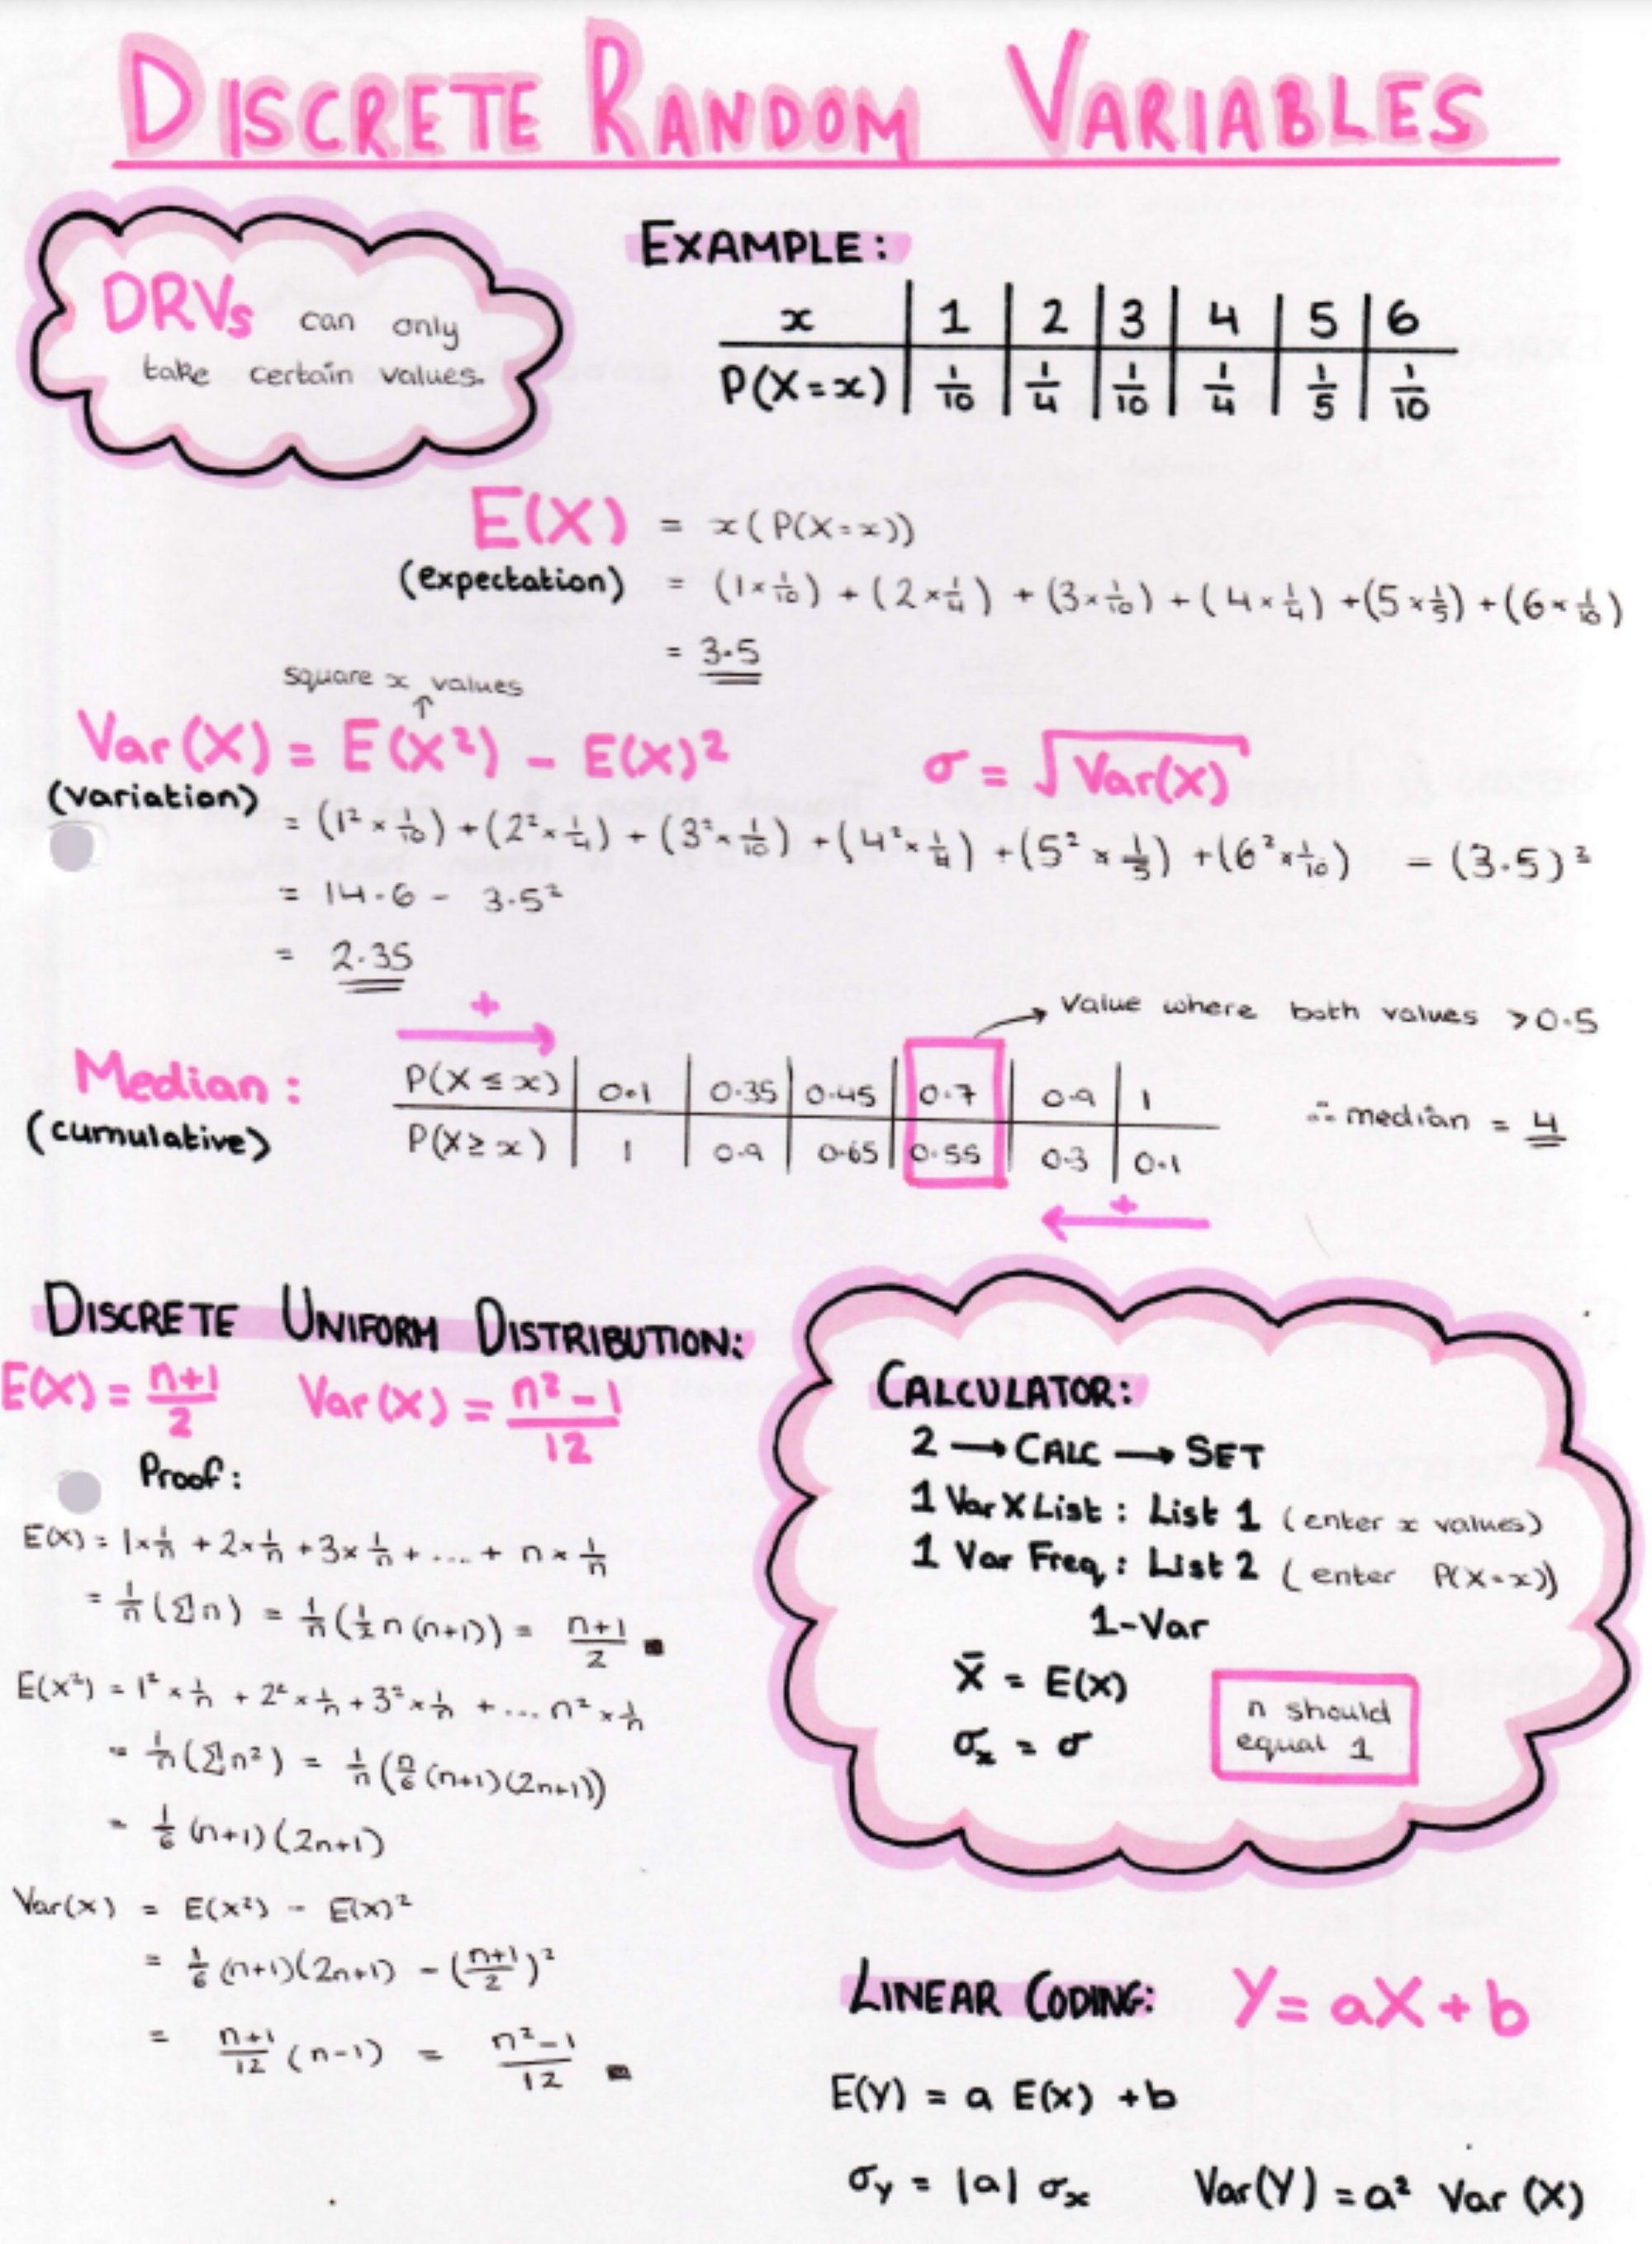 DISCRETE RANDOM VARIABLES
DRVs can only
take certain values.
EXAMPLE:
x | 1 | 2 | 3 | 4 | 5 | 6
P(X=x) | 1/10 | 1/4 | 1/10 | 1/4 | 1/5 | 1/10
E(X) = x(P(X=x))
(expectation) = (1×1/10) + (2×1/4) + (3×1/10) + (4×1/4) + (5×1/5) + (6×1/10)
= 3.5
square x values
↑
Var(X) = E(X²) - E(X)²
σ = √Var(X)
(variation)
= (1²×1/10) + (2²×1/4) + (3²×1/10) + (4²×1/4) + (5²×1/5) + (6²×1/10) - (3.5)²
= 14.6 - 3.5²
= 2.35
+
→ Value where both values >0.5
Median:
(cumulative)
P(X≤x) | 0.1 | 0.35 | 0.45 | 0.7 | 0.9 | 1
P(X≥x) | 1 | 0.9 | 0.65 | 0.55 | 0.3 | 0.1
∴ median = 4
+
DISCRETE UNIFORM DISTRIBUTION:
E(X) = n+1/2 Var(X) = n²-1/12
Proof:
E(X) = 1×1/n + 2×1/n + 3×1/n + .... + n×1/n
= 1/n(Σn) = 1/n(1/2n(n+1)) = n+1/2 ■
E(X²) = 1²×1/n + 2²×1/n + 3²×1/n + ... n²×1/n
= 1/n(Σn²) = 1/n(n/6(n+1)(2n+1))
= 1/6(n+1)(2n+1)
Var(x) = E(x²) - E(x)²
= 1/6(n+1)(2n+1) - (n+1/2)²
= n+1/12(n-1) = n²-1/12 ■
CALCULATOR:
2 → CALC → SET
1 Var X List : List 1 (enter x values)
1 Var Freq : List 2 (enter P(X=x))
1-Var
x̄ = E(X)
σₓ = σ
n should
equal 1
LINEAR CODING: Y = aX + b
E(Y) = a E(X) + b
σᵧ = |a| σₓ Var(Y) = a² Var(X)